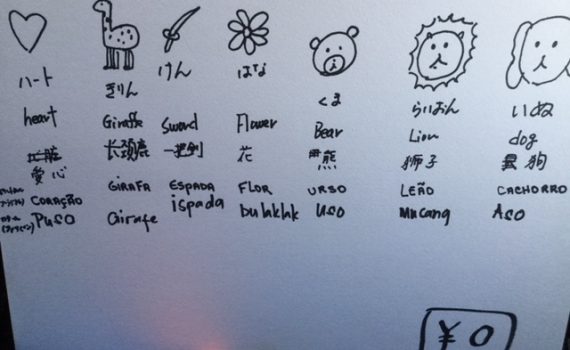 ハート きりん けん はな くま らいおん いぬ
heart Giraffe Sword Flower Bear Lion dog
愛心 长颈鹿 一把剑 花 熊 狮子 狗
CORAÇÃO GIRAFA ESPADA FLOR URSO LEÃO CACHORRO
Puso Girafe ispada bulaklak uso Mucang Aso
¥0